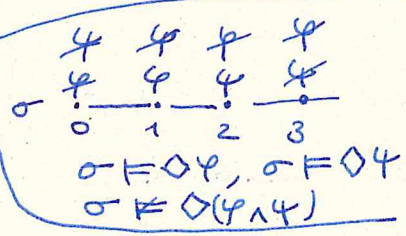 ψ̸ ψ̸ φ̸ φ̸
φ̸ φ ψ ψ̸
σ
0 1 2 3
σ ⊨ ◇φ, σ ⊨ ◇ψ
σ ⊭ ◇(φ∧ψ)